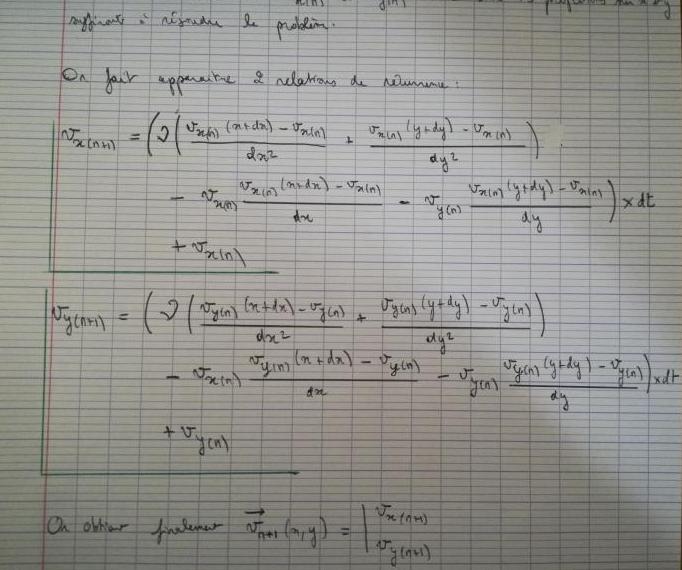 suffisante à résoudre le problème.
On fait apparaitre 2 relations de récurrence :
v_x(n+1) = (ν( (v_x(n) (x+dx) - v_x(n))/dx² + (v_x(n) (y+dy) - v_x(n))/dy² )
- v_x(n) (v_x(n) (x+dx) - v_x(n))/dx - v_y(n) (v_x(n) (y+dy) - v_x(n))/dy ) × dt
+ v_x(n)
v_y(n+1) = (ν( (v_y(n) (x+dx) - v_y(n))/dx² + (v_y(n) (y+dy) - v_y(n))/dy² )
- v_x(n) (v_y(n) (x+dx) - v_y(n))/dx - v_y(n) (v_y(n) (y+dy) - v_y(n))/dy ) × dt
+ v_y(n)
On obtient finalement v⃗_n+1 (x,y) = | v_x(n+1)
v_y(n+1)